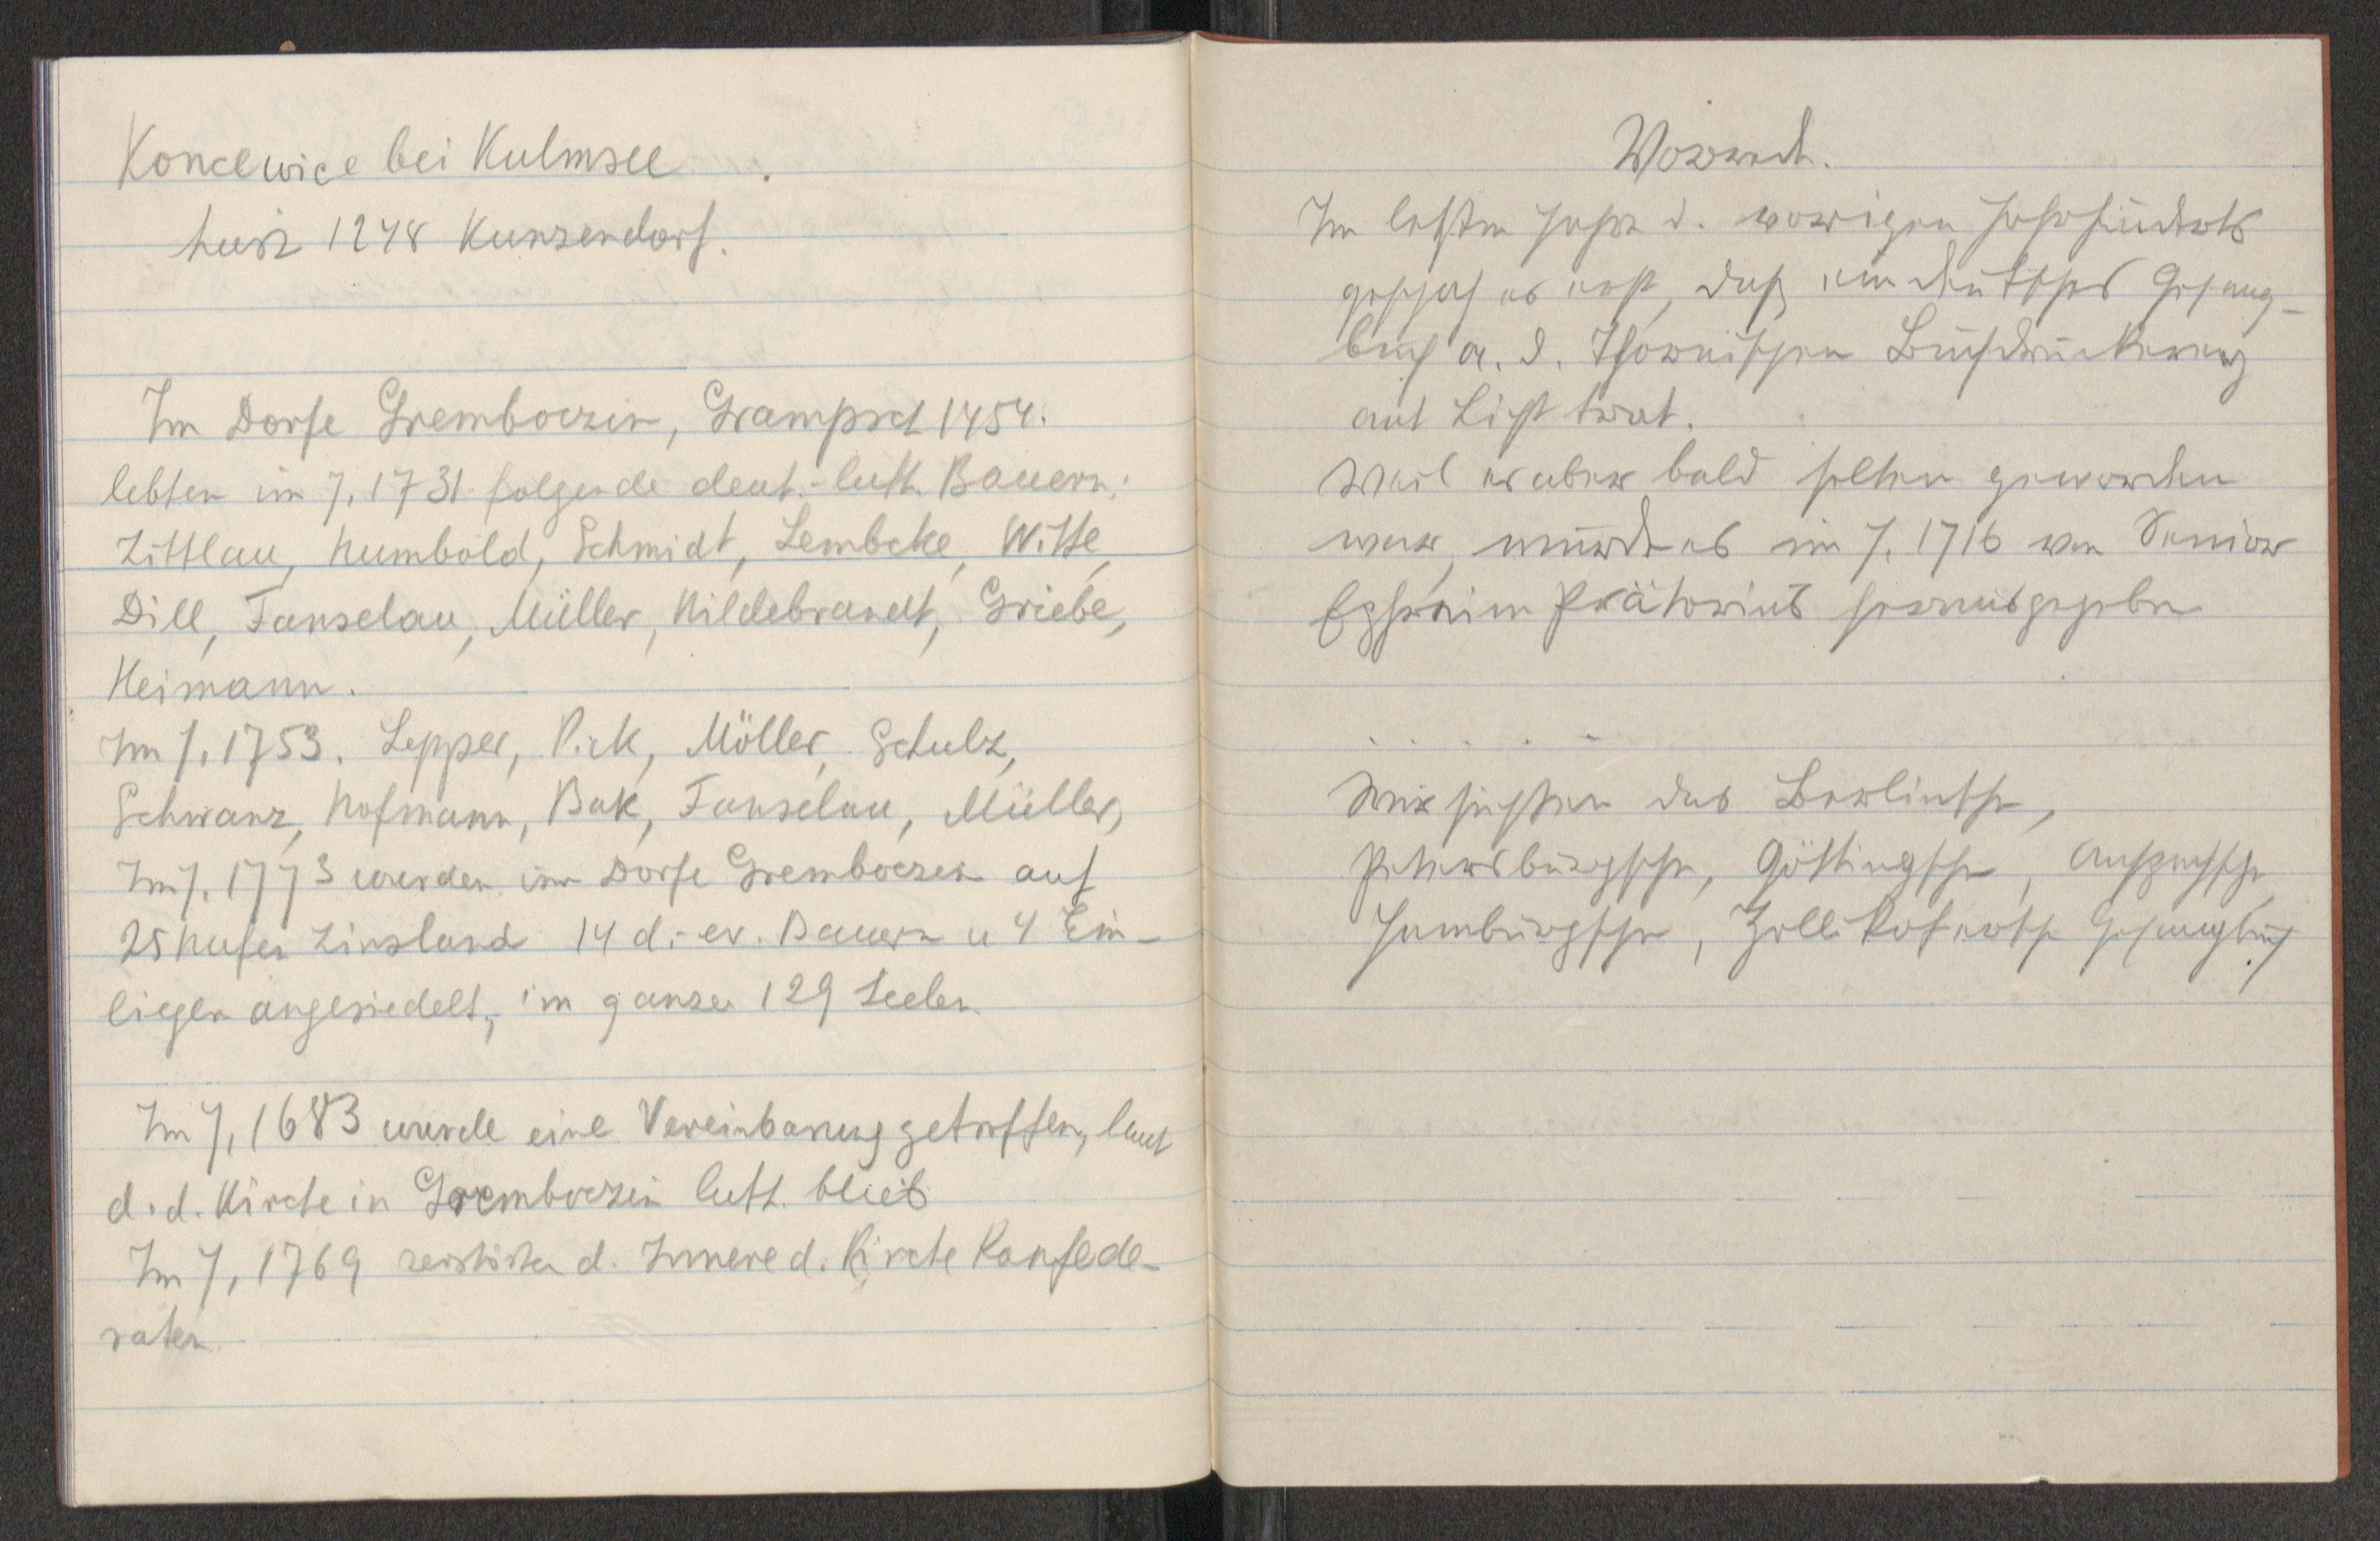 Koncewice bei Kulmsee
heißt 1248 Kunzendorf.
Im Dorfe Gremboczin, Grampsch 1454.
lebten im J. 1731 folgende deut.-luth. Bauern:
Zittlau, Humbold, Schmidt, Lembcke, Witte,
Dill, Fanselau, Müller, Hildebrandt, Griebe,
Heimann.
Im J. 1753. Lepper, Pick, Möller, Schulz,
Schwanz, Hofmann, Bak, Fanselau, Müller,
Im J. 1773 wurden im Dorfe Gremboczin auf
25 Hufen Zinsland 14 d.-ev. Bauern u 4 Ein-
lieger angesiedelt, im ganzen 129 Seelen
Im J. 1683 wurde eine Vereinbarung getroffen, laut
d. d. Kirche in Gremboczin luth. blieb
Im J. 1769 zerstörten d. Innere d. Kirche Konfede-
raten
Vorrede.
Im letzten Jahr d. vorigen Jahrhunderts
geschah es erst, daß ein deutsches Gesang-
buch a. d. Thornischen Buchdruckerey
ans Licht trat.
Weil es aber bald selten geworden
war, wurde es im J. 1716 von Senior
Ephraim Prätorius herausgegeben
. . . . -
Wir suchten das Berlinsche,
Petersburgsche, Göttingsche, Anspachsche
Hamburgsche, Zollikofersche Gesangbuch